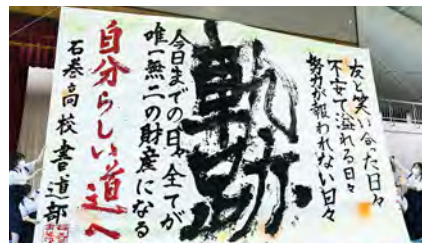 友と笑い合った日々
不安で溢れる日々
努力が報われない日々
軌跡
今日までの日々全てが
唯一無二の財産になる
自分らしい道へ
石巻高校書道部